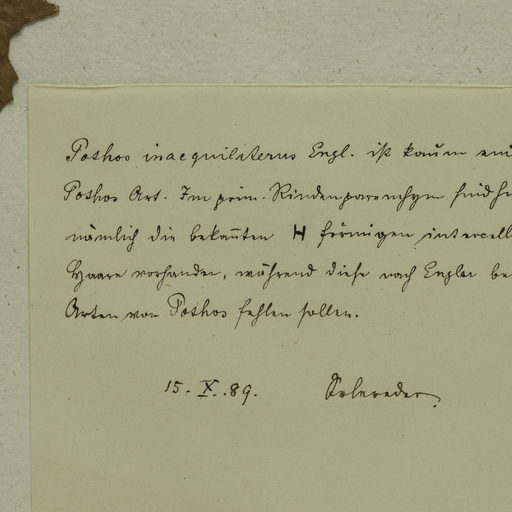 Pothos inaequilaterus Engl. ist kaum ein
Pothos Art. Im prim. Rindenparenchym sind
nämlich die bekannten H förmigen intercell
Haare vorhanden, während diese nach Engler be
Arten von Pothos fehlen sollen.
15. X. 89. Solereder.